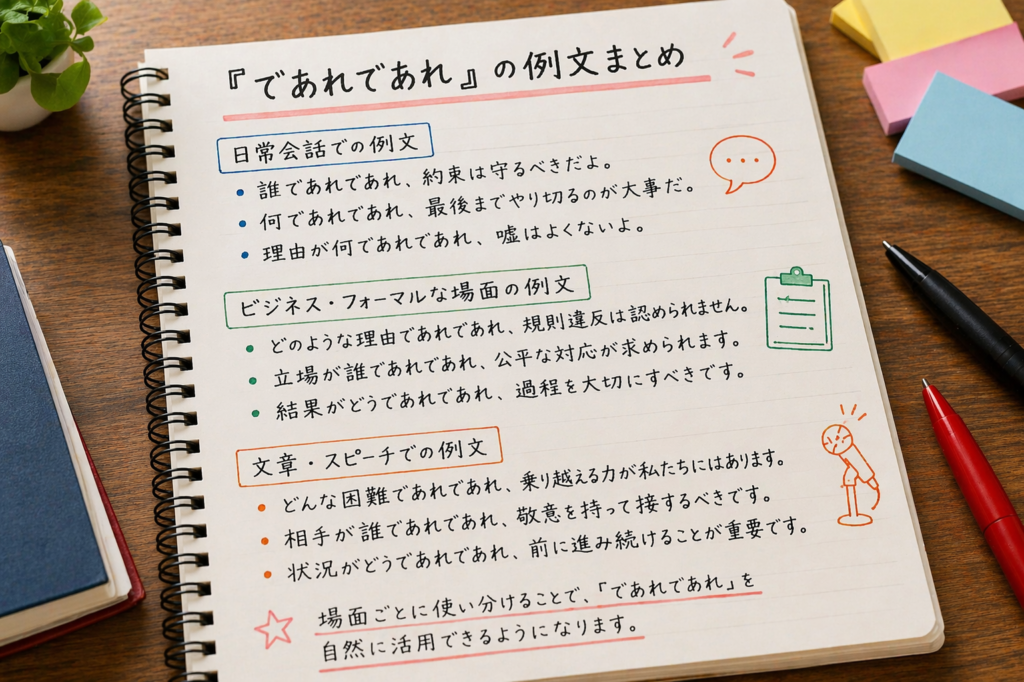 『であれであれ』の例文まとめ
日常会話での例文
• 誰であれであれ、約束は守るべきだよ。
• 何であれであれ、最後までやり切るのが大事だ。
• 理由が何であれであれ、嘘はよくないよ。
ビジネス・フォーマルな場面の例文
• どのような理由であれであれ、規則違反は認められません。
• 立場が誰であれであれ、公平な対応が求められます。
• 結果がどうであれであれ、過程を大切にすべきです。
文章・スピーチでの例文
• どんな困難であれであれ、乗り越える力が私たちにはあります。
• 相手が誰であれであれ、敬意を持って接するべきです。
• 状況がどうであれであれ、前に進み続けることが重要です。
場面ごとに使い分けることで、「であれであれ」を
自然に活用できるようになります。